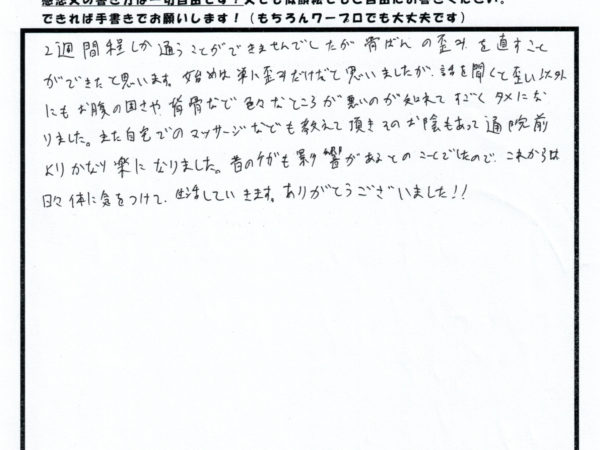 感想文の書き方は一切自由です！
できれば手書きでお願いします！（もちろんワープロでも大丈夫です）
2週間程しか通うことができませんでしたが骨ばんの歪みを直すこと
ができたと思います。始めは単に歪みだけだと思いましたが、話を聞くと歪み以外
にもお腹の固さや、背骨など色々なところが悪いのが知れてすごくタメにな
りました。また自宅でのマッサージなども教えて頂きそのお陰もあって通院前
よりかなり楽になりました。昔のケガも影響があるとのことでしたので、これからは
日々体に気をつけて、生活していきます。ありがとうございました!!